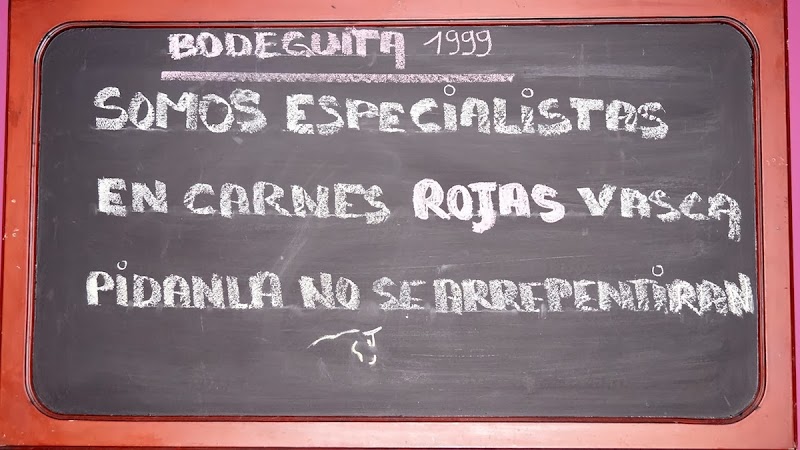 BODEGUITA 1999
SOMOS ESPECIALISTAS
EN CARNES ROJAS VASCA
PIDANLA NO SE ARREPENTIRAN